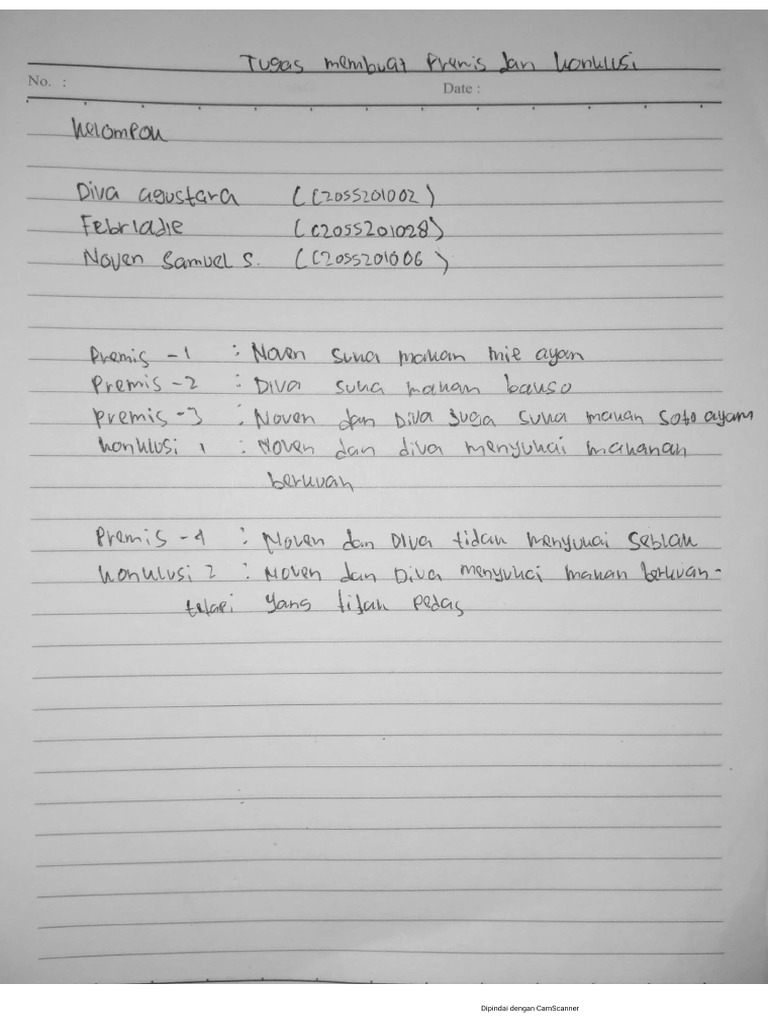 Tugas membuat Premis dan konklusi
No. :
Date :
kelompok
Diva agustara (C2055201002)
Febriadie (C2055201028)
Noven Samuel S. (C2055201006)
Premis -1 : Noven suka makan mie ayan
Premis -2 : Diva suka makan bakso
Premis -3 : Noven dan Diva Juga suka makan soto ayam
konklusi 1 : Noven dan diva menyukai makanan
berkuah
Premis -4 : Noven dan Diva tidak menyukai Seblak
konklusi 2 : Noven dan Diva menyukai makan berkuah-
tetapi yang tidak pedas
Dipindai dengan CamScanner